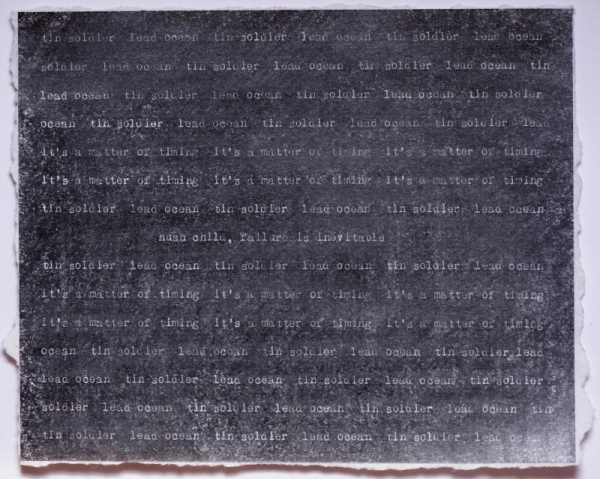 tin soldier lead ocean tin soldier lead ocean tin soldier lead ocean
soldier lead ocean tin soldier lead ocean tin soldier lead ocean tin
lead ocean tin soldier lead ocean tin soldier lead ocean tin soldier
ocean tin soldier lead ocean tin soldier lead ocean tin soldier lead
it's a matter of timing it's a matter of timing it's a matter of timing
it's a matter of timing it's a matter of timing it's a matter of timing
tin soldier lead ocean tin soldier lead ocean tin soldier lead ocean
hush child, failure is inevitable
tin soldier lead ocean tin soldier lead ocean tin soldier lead ocean
it's a matter of timing it's a matter of timing it's a matter of timing
it's a matter of timing it's a matter of timing it's a matter of timing
ocean tin soldier lead ocean tin soldier lead ocean tin soldier lead
lead ocean tin soldier lead ocean tin soldier lead ocean tin soldier
soldier lead ocean tin soldier lead ocean tin soldier lead ocean tin
tin soldier lead ocean tin soldier lead ocean tin soldier lead ocean